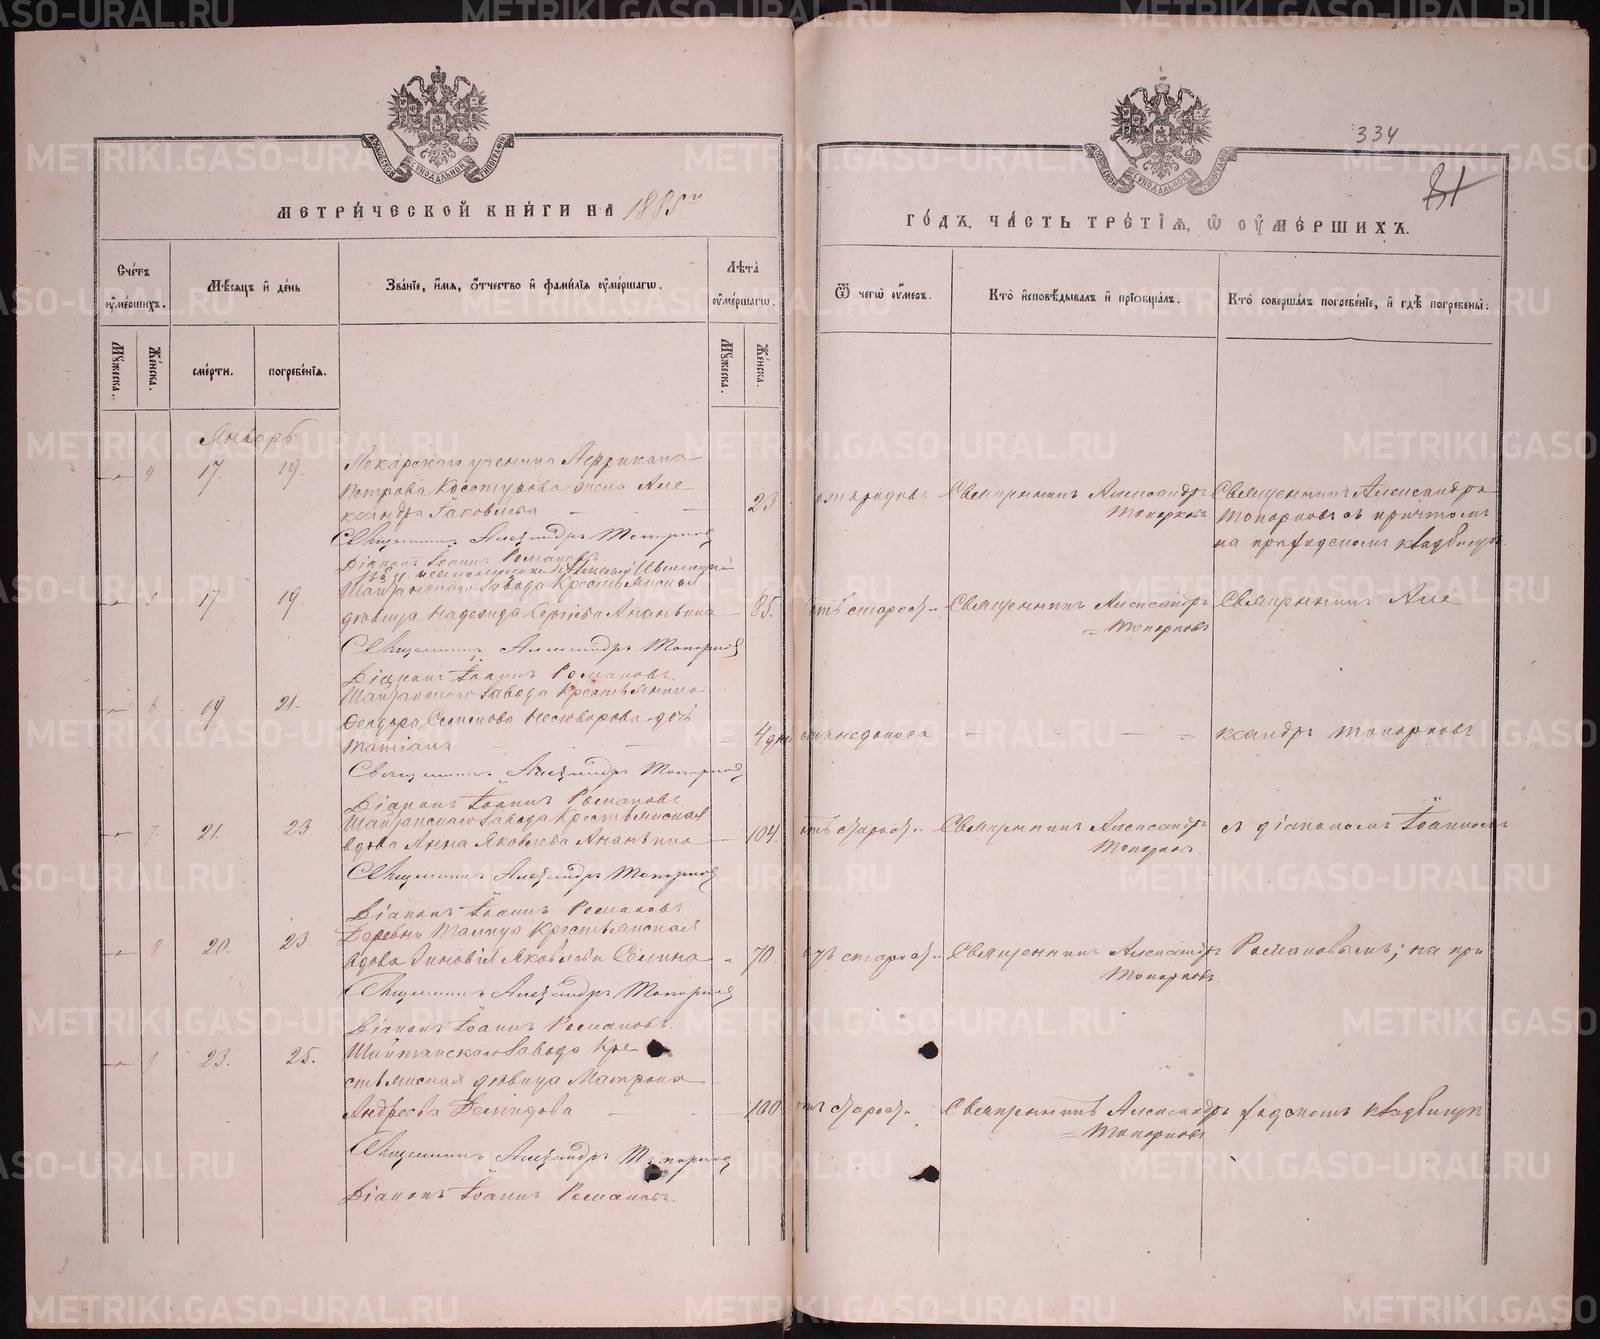 334
МОСКОВСКОЙ СѴНОДАЛЬНОЙ ТИПОГРАФІИ
МЕТРИЧЕСКОЙ КНИГИ НА 1885й
ГОДЪ, ЧАСТЬ ТРЕТІЯ, Ѿ ОУМЕРШИХЪ.
Счетъ оумершихъ.
Мѣсяцъ и день
Званіе, имя, ѻтчество и фамилія оумершагѡ.
Лѣта оумершагѡ.
Ѿ чегѡ оумеръ.
Кто исповѣдывалъ и пріобщалъ.
Кто совершалъ погребеніе, и гдѣ погребены:
Мужеска.
Женска.
смерти.
погребенія.
Мужеска.
Женска.
Январь
4 17. 19. Лекарскаго ученика Африкана
Петрова Косотурова жена Але-
ксандра Іаковлева 23. отъ родовъ Священникъ Александръ Топорковъ
Священникъ Александръ
Топорковъ съ причтомъ
на приходскомъ кладбищѣ
Священникъ Александръ Топорковъ
Діаконъ Іоаннъ Романовъ
17 19. Шайтанскаго Завода Крестьянская
дѣвица Надежда Сергѣева Ананьина 85. отъ старости Священникъ Александръ Топорковъ Священникъ Але
Священникъ Александръ Топорковъ
Діаконъ Іоаннъ Романовъ.
6 19 21. Шайтанскаго Завода Крестьянина
Ѳеодора Семенова дочь
4 дн. отъ недоноса ксандръ Топорковъ
Священникъ Александръ Топорковъ
Діаконъ Іоаннъ Романовъ.
7. 21. 23 Шайтанскаго Завода Крестьянская
вдова Анна Яковлева Ананьина 104. отъ старости Священникъ Александръ Топорковъ. съ діакономъ Іоанномъ
Священникъ Александръ Топорковъ
Діаконъ Іоаннъ Романовъ
8 20. 23. Деревни Талицы Крестьянская
вдова Зиновія Яковлева Селина 70. отъ старости Священникъ Александръ Топорковъ. Романовымъ; на при
Священникъ Александръ Топорковъ
Діаконъ Іоаннъ Романовъ.
9 23. 25. Шайтанскаго Завода Кре
стьянская дѣвица Матрона
Андреева Демидова 100 отъ старости Священникъ Александръ Топорковъ ходскомъ кладбищѣ
Священникъ Александръ Топорковъ
Діаконъ Іоаннъ Романовъ.
METRIKI.GASO-URAL.RU